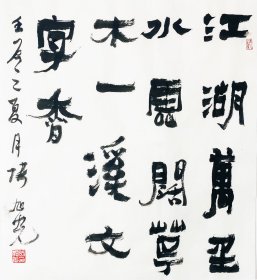 江湖萬里
水雲闊草
木一溪文
字香
壬辰之夏月張旭光